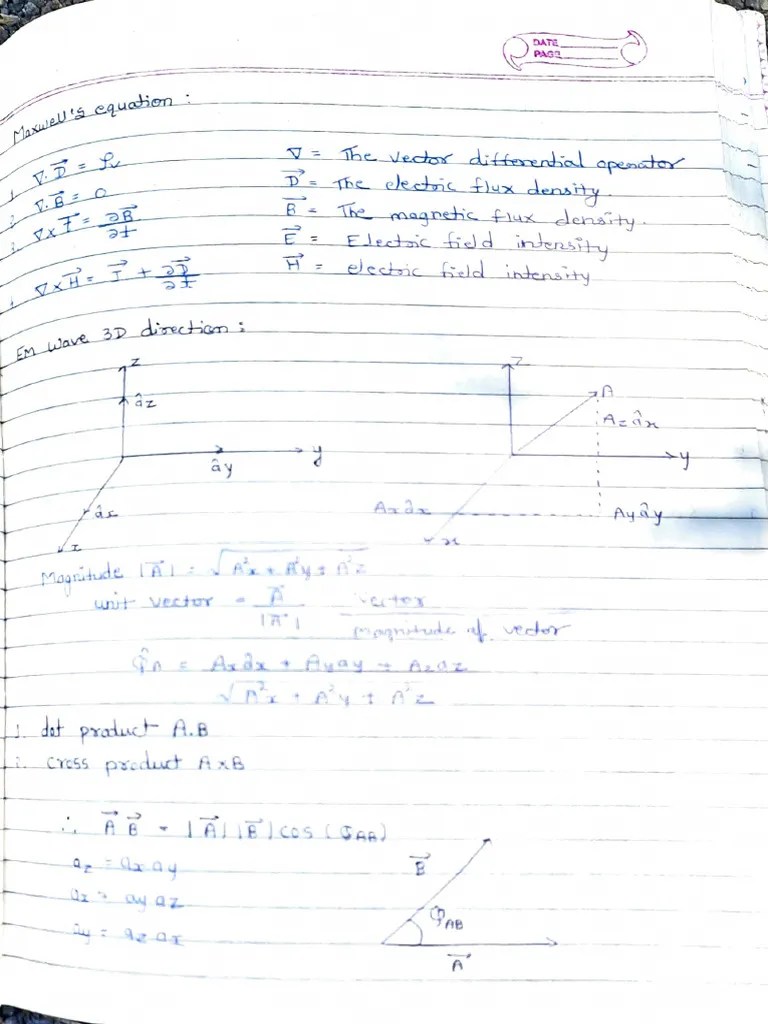 DATE
PAGE
Maxwell's equation :
1. ∇.D⃗ = ρv
2. ∇.B⃗ = 0
3. ∇×E⃗ = ∂B⃗/∂t
4. ∇×H⃗ = J⃗ + ∂D⃗/∂t
∇ = The vector differential operator
D⃗ = The electric flux density.
B⃗ = The magnetic flux density.
E⃗ = Electric field intensity
H⃗ = electric field intensity
Em wave 3D direction :
z
âz
y
ây
âx
x
z
A
Az âx
y
Ax âx
Ay ây
x
Magnitude |A⃗| = √A²x + A²y + A²z
unit vector = A⃗/|A⃗| vector/magnitude of vector
âA = Ax âx + Ay ay + Az az
√A²x + A²y + A²z
1. dot product A.B
2. cross product A×B
∴ A⃗ B⃗ = |A⃗| |B⃗| cos (θAB)
az = ax ay
ax = ay az
ay = az ax
B⃗
φAB
A⃗